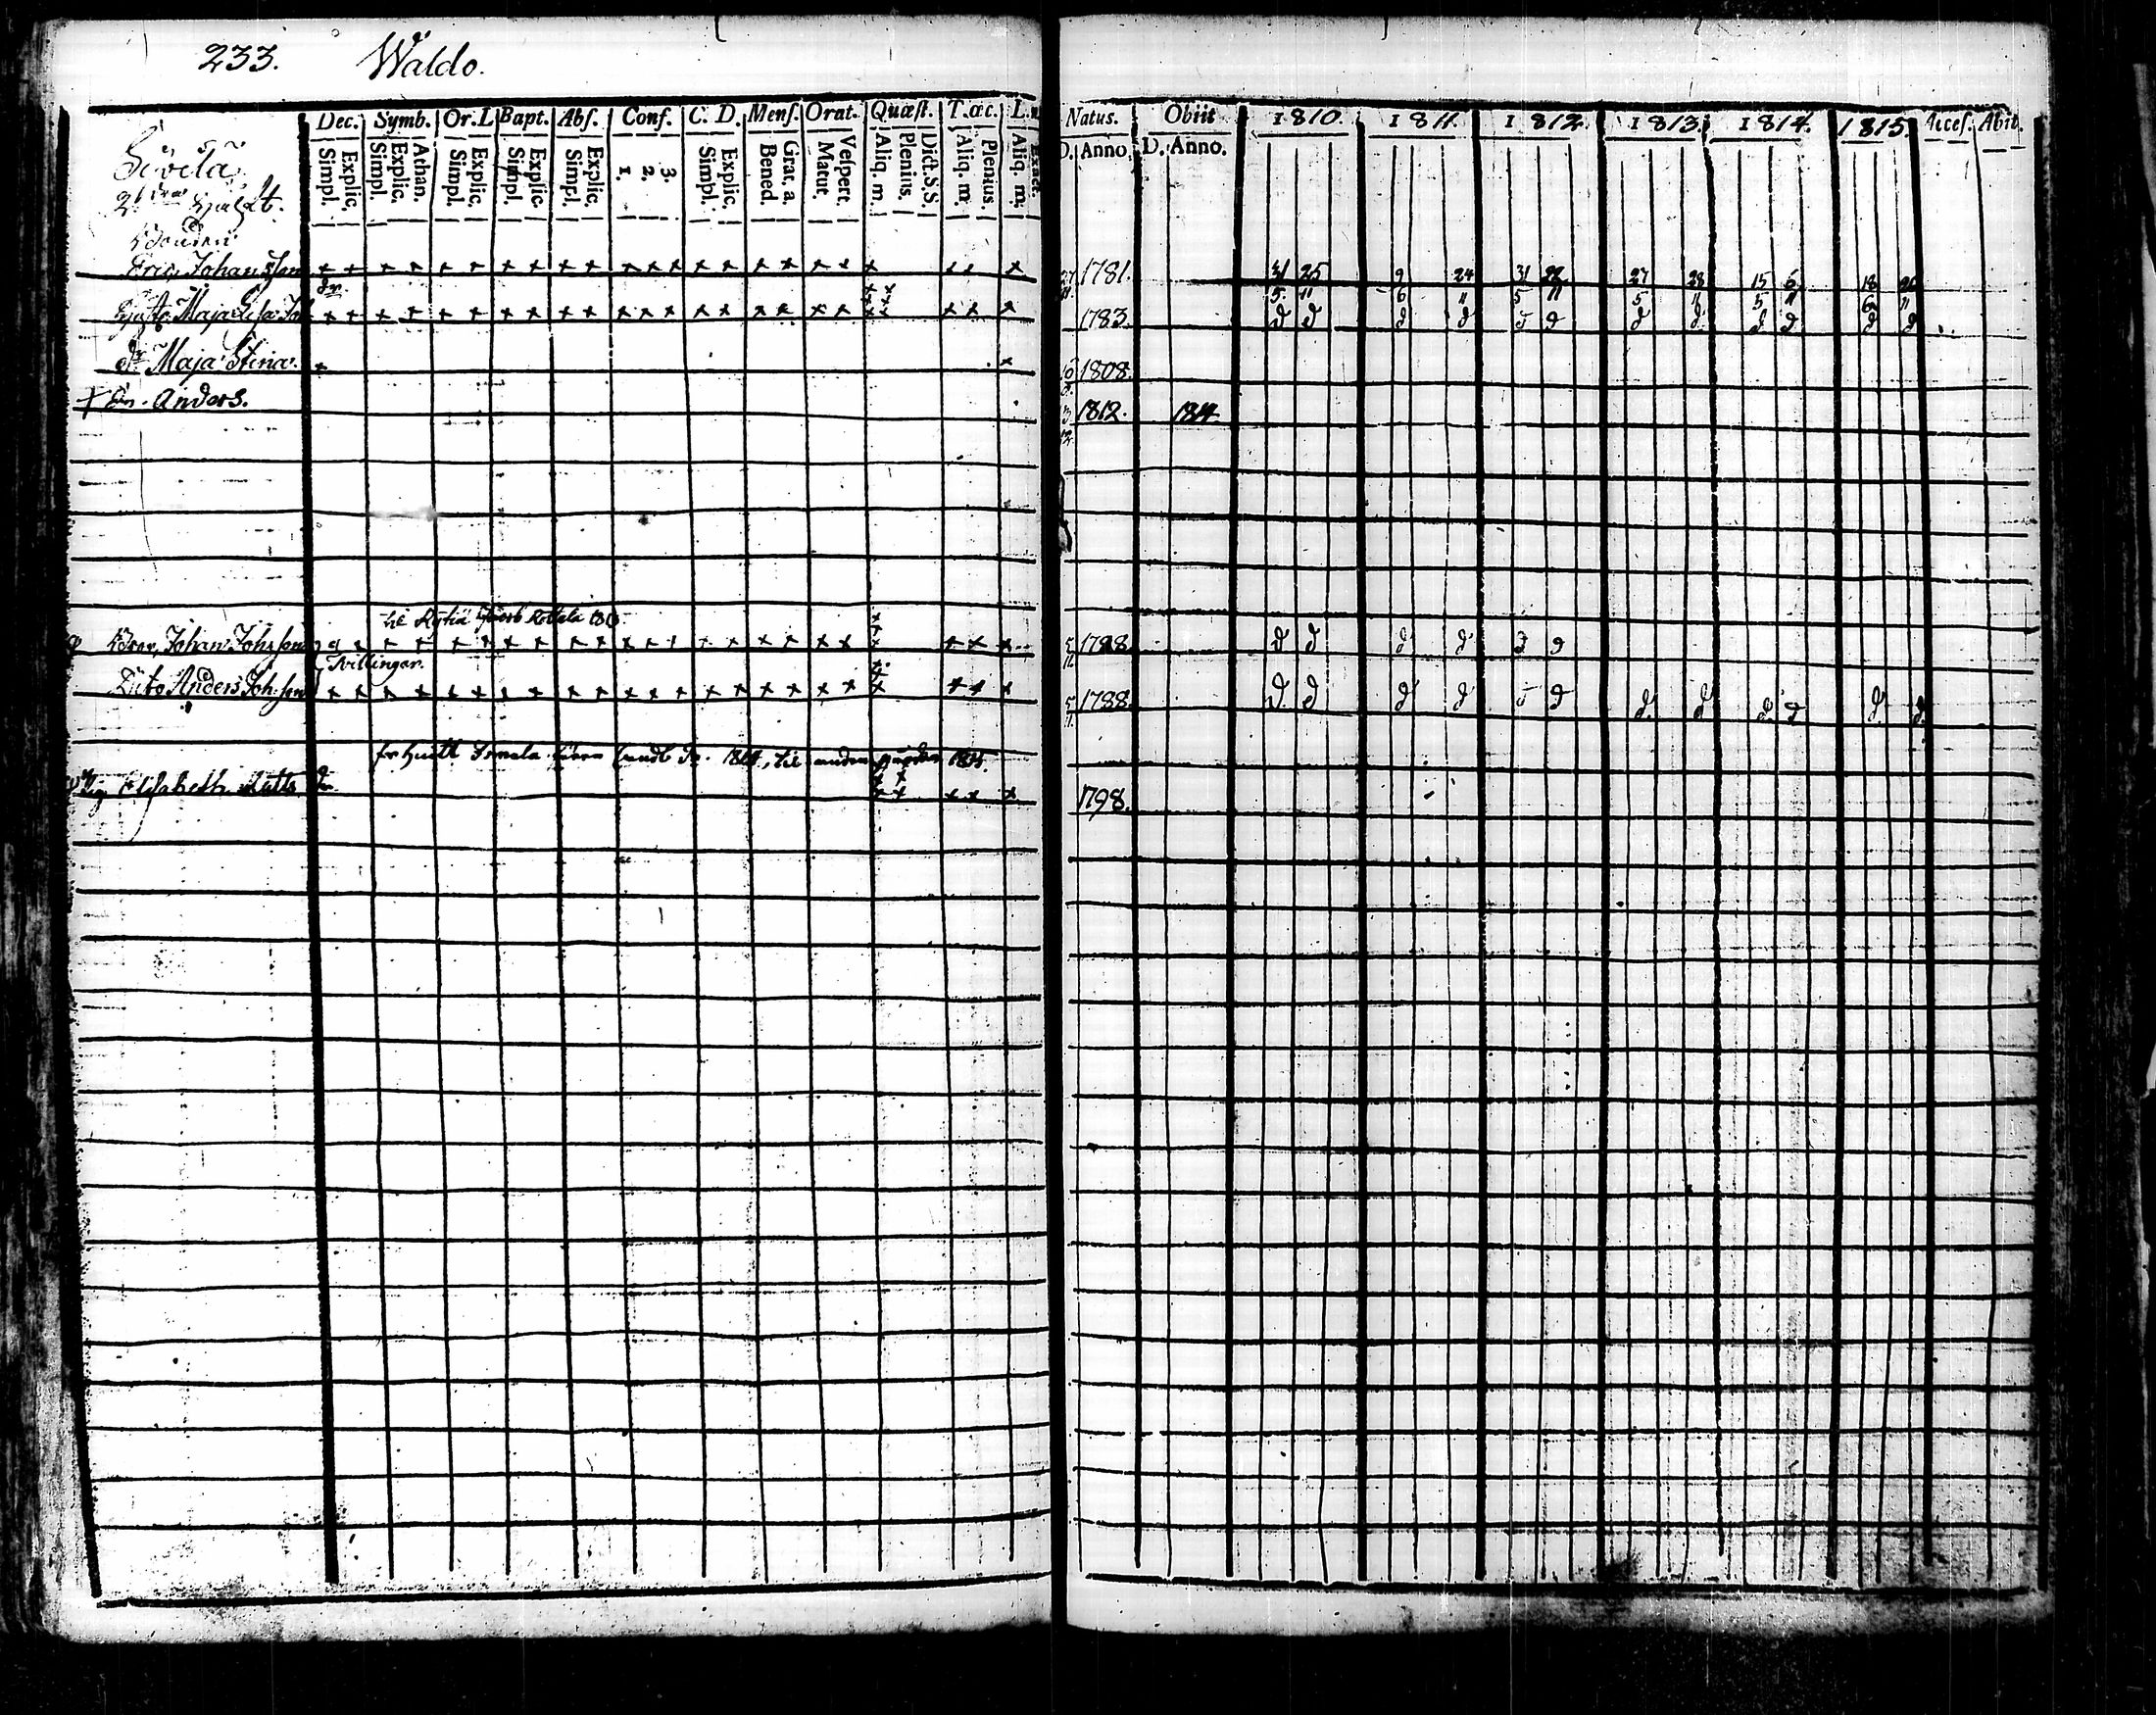 233. Waldo.
Dec. Symb. Or. L Bapt. Abs. Conf. C. D. Mens. Orat. Quæst. T. œc. L.
Simpl. Explic. Simpl. Explic. Athan. Simpl. Explic. Simpl. Explic. Simpl. Explic. 1. 2. 3. Simpl. Explic. Bened. Grat. a Matut. Vespert. Aliq. m. Plenius. Dict. S. S. Aliq. m Plenius. Aliq. m. Exact.
Natus. Obiit 1810. 1811. 1812. 1813. 1814. 1815. Acces. Abit.
D. Anno. D. Anno.
Bonden
Eric Johansson + + + + + + + + + + + + + + + + + + + 1781. 31 25 9 24 31 22 27 28 15 6 18 26
5 11 6 11 5 11 5 11 5 11 6 11
Hustr Maja Lisa Joh dr + + + + + + + + + + + + + + + + + + 1783. d d d d d d d d d d d d
dr Maja Stina. 1808.
+ Son Anders. 1812. 1814.
til 1813.
Bror Johan Johsson + + + + + + + + + + + + 1788 d d d d d d
Tvillingar.
Dito Anders Johsson + + + + + + + + + + + + 1788. d d d d d d d d d d d d
1814, til andra 1815.
Pig Elisabeth Matts dr + + + + + 1798.